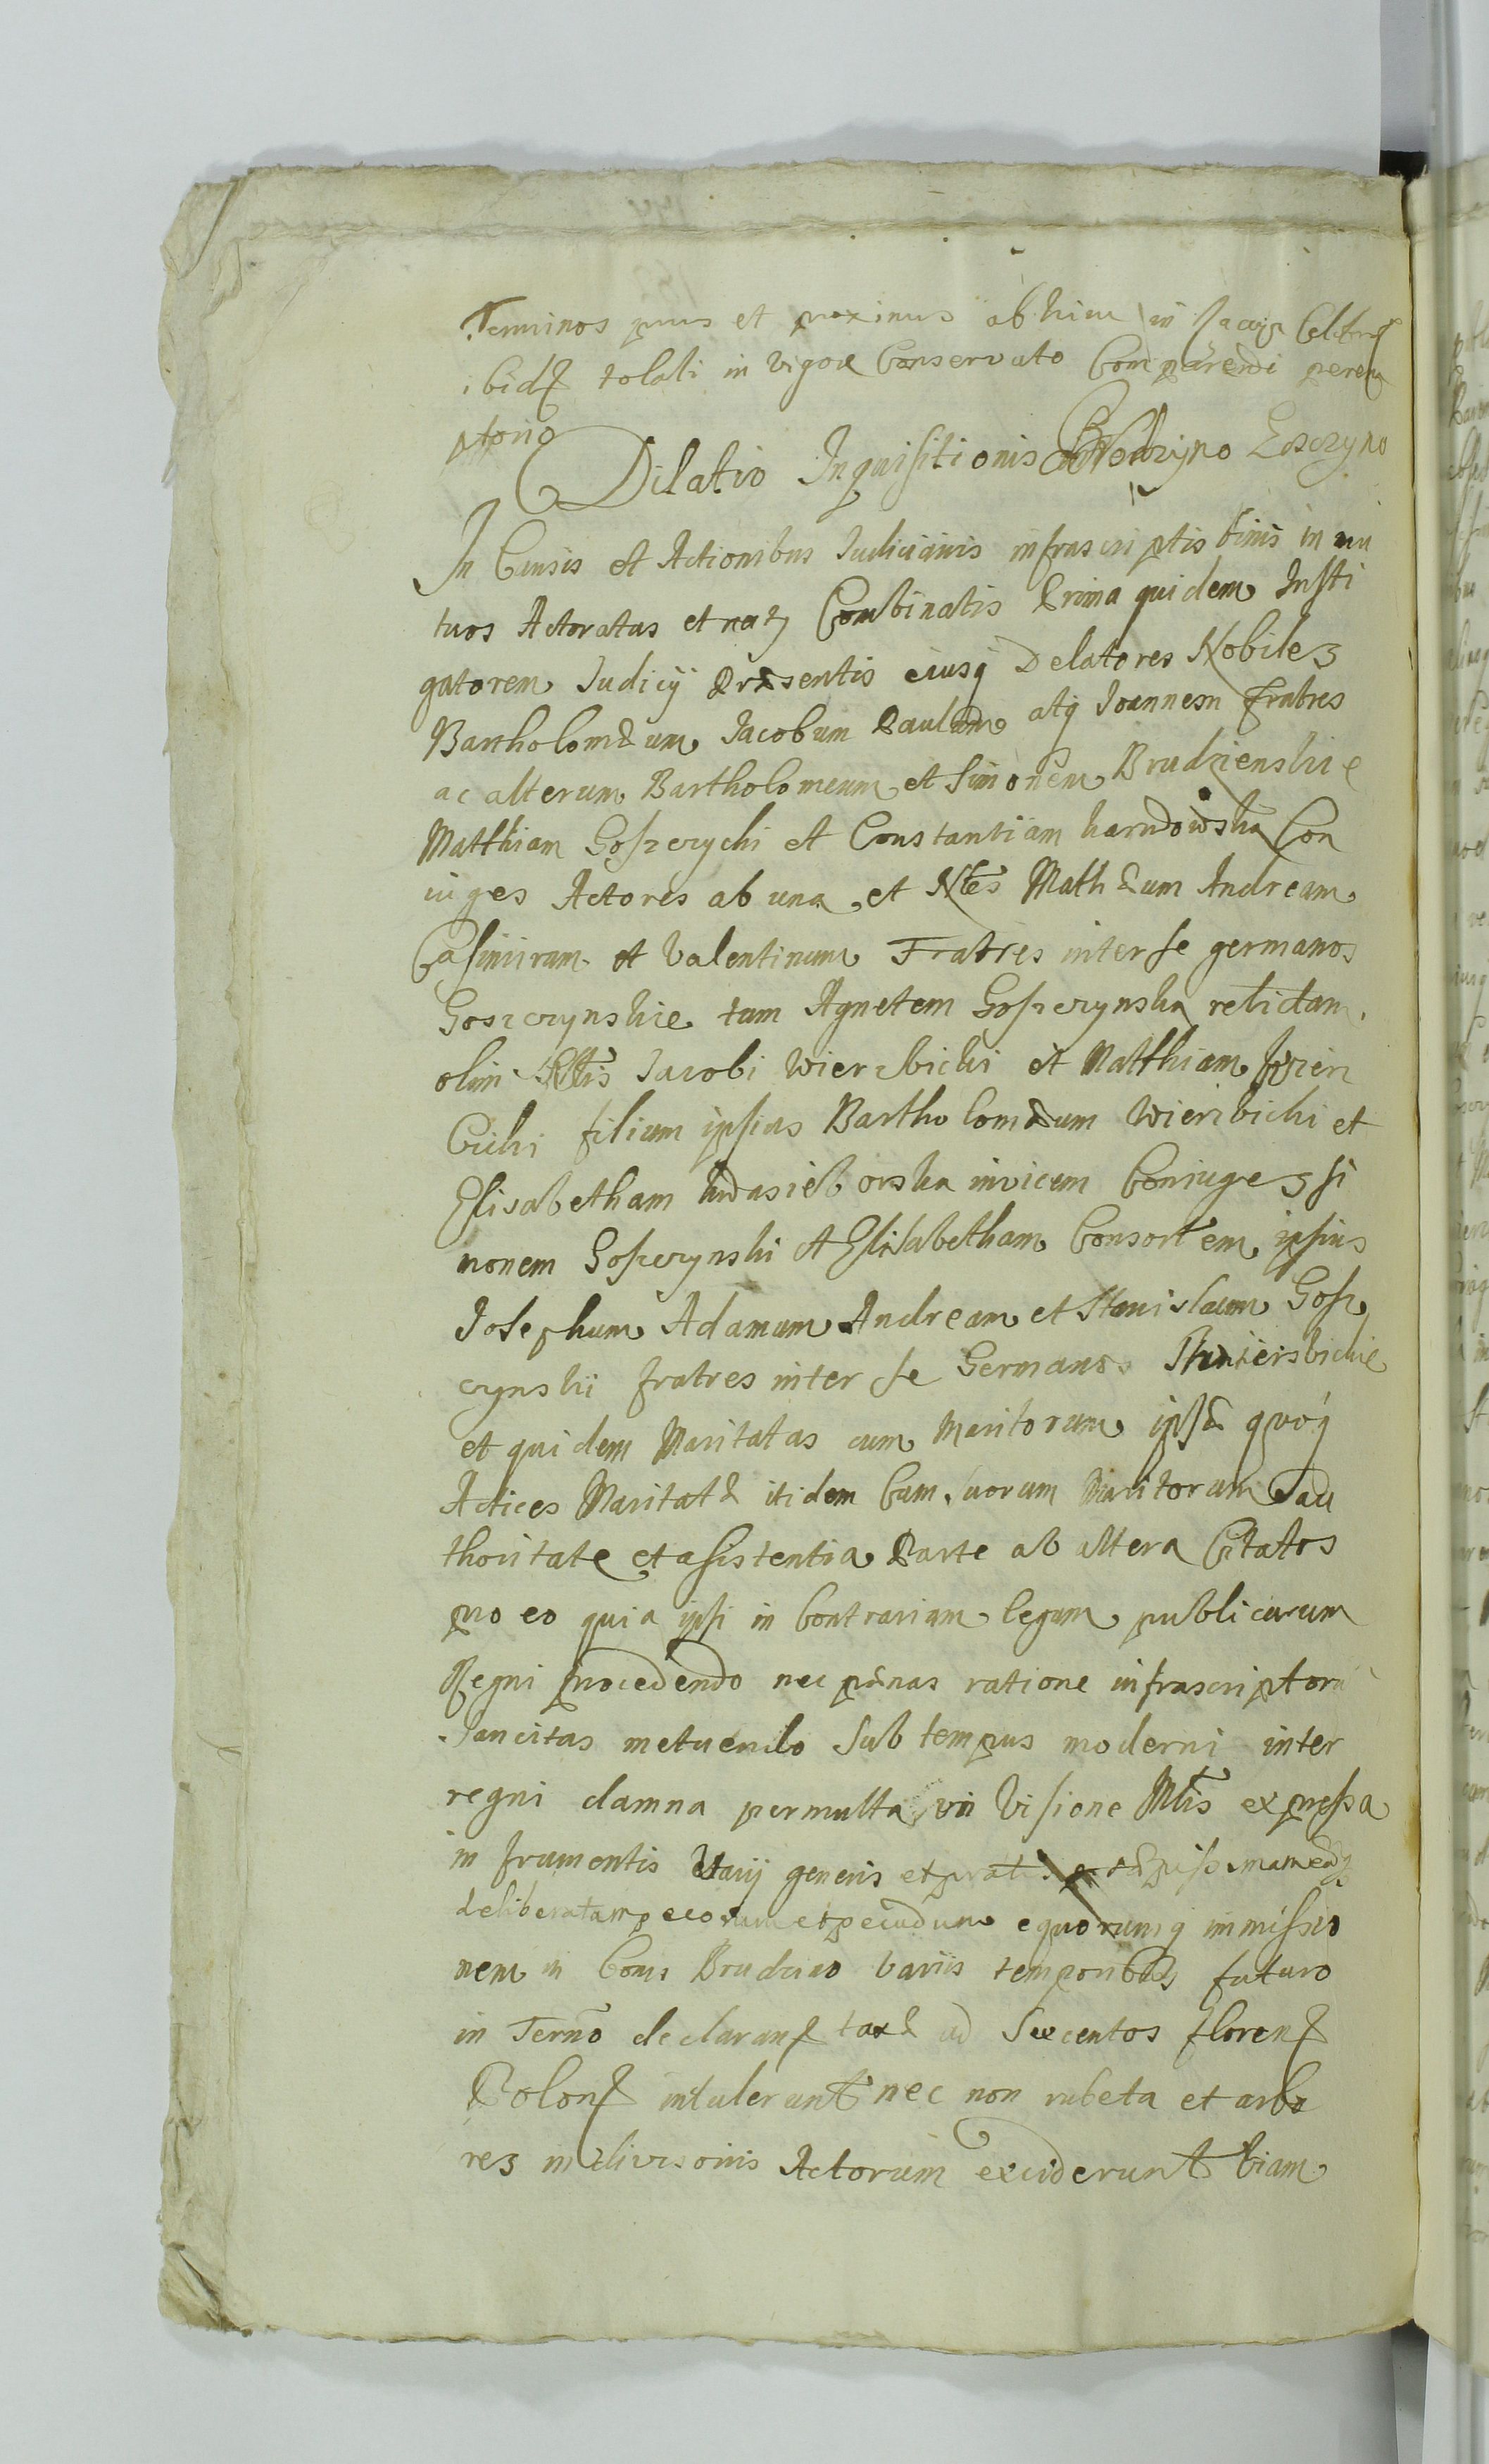 Terminos prius et proximus abhinc in
ibid tolati in vigore Conservato Comparendi perem
ptorio
Dilatio Inquisitionis Brodzyno Goszyno
In Causis et Actionibus Judiciariis infrascriptis binis in mu
tuos Actoratus et Combinatis Prima quidem Insti
gatorem Judicij Præsentis eiusq Delatores Nobiles
Bartholomæum Jacobum Paulum atq Joannem fratres
ac alterum Bartholomeum et Simonem Brudzienskie
Matthiam Goszczychi et Constantiam Con
iuges Actores ab una et Nbles Mathæum Andream
Casimirum et Valentinum Fratres inter se germanos
Goszczynskie tam Agnetem Goszczynska relictam
olim Jacobi Wierzbicki et Matthiam Wierz
bicki filium ipsius Bartholomæum Wierzbicki et
Elisabetham invicem Coniuges Si
monem Goszczynski et Elisabetham Consortem ipsius
Josephum Adamum Andream et Stanislaum Gosz
czynskii fratres inter se Germanos
et quidem Maritatas cum Maritorum ipsæ quoq
Actices Maritatæ itidem Cum suorum Maritorum au
thoritate et assistentia Parte ab altera Citatos
pro eo quia ipsi in Contrarium legum publicarum
Regni procedendo nec pænas ratione infrascriptorū
Sancitas metuendo Sub tempus moderni inter
regni damna permulta in Visione Mlis expressa
in frumentis Varij generis et pratis
deliberatam pecorum et pecudum equorumq immissio
nem in bonis Brudzino variis temporibus futuro
in Termō declarand taxæ ad Sexcentos floren
Polon intulerunt nec non rubeta et arbo
res in divisoriis Actorum exciderunt viam